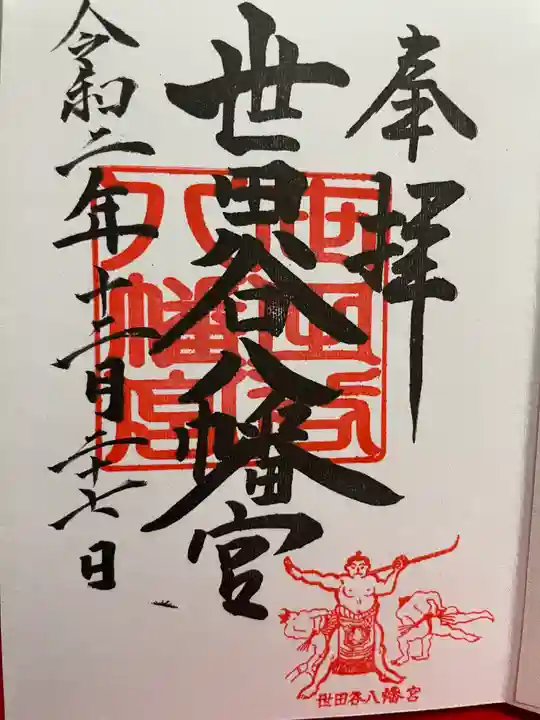 奉拝
世田谷八幡宮
令和二年十二月二十七日
世田谷八幡宮
世田谷八幡宮